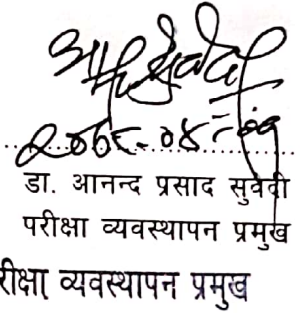 डा. आनन्द प्रसाद सुवेदी
परीक्षा व्यवस्थापन प्रमुख
रीक्षा व्यवस्थापन प्रमुख